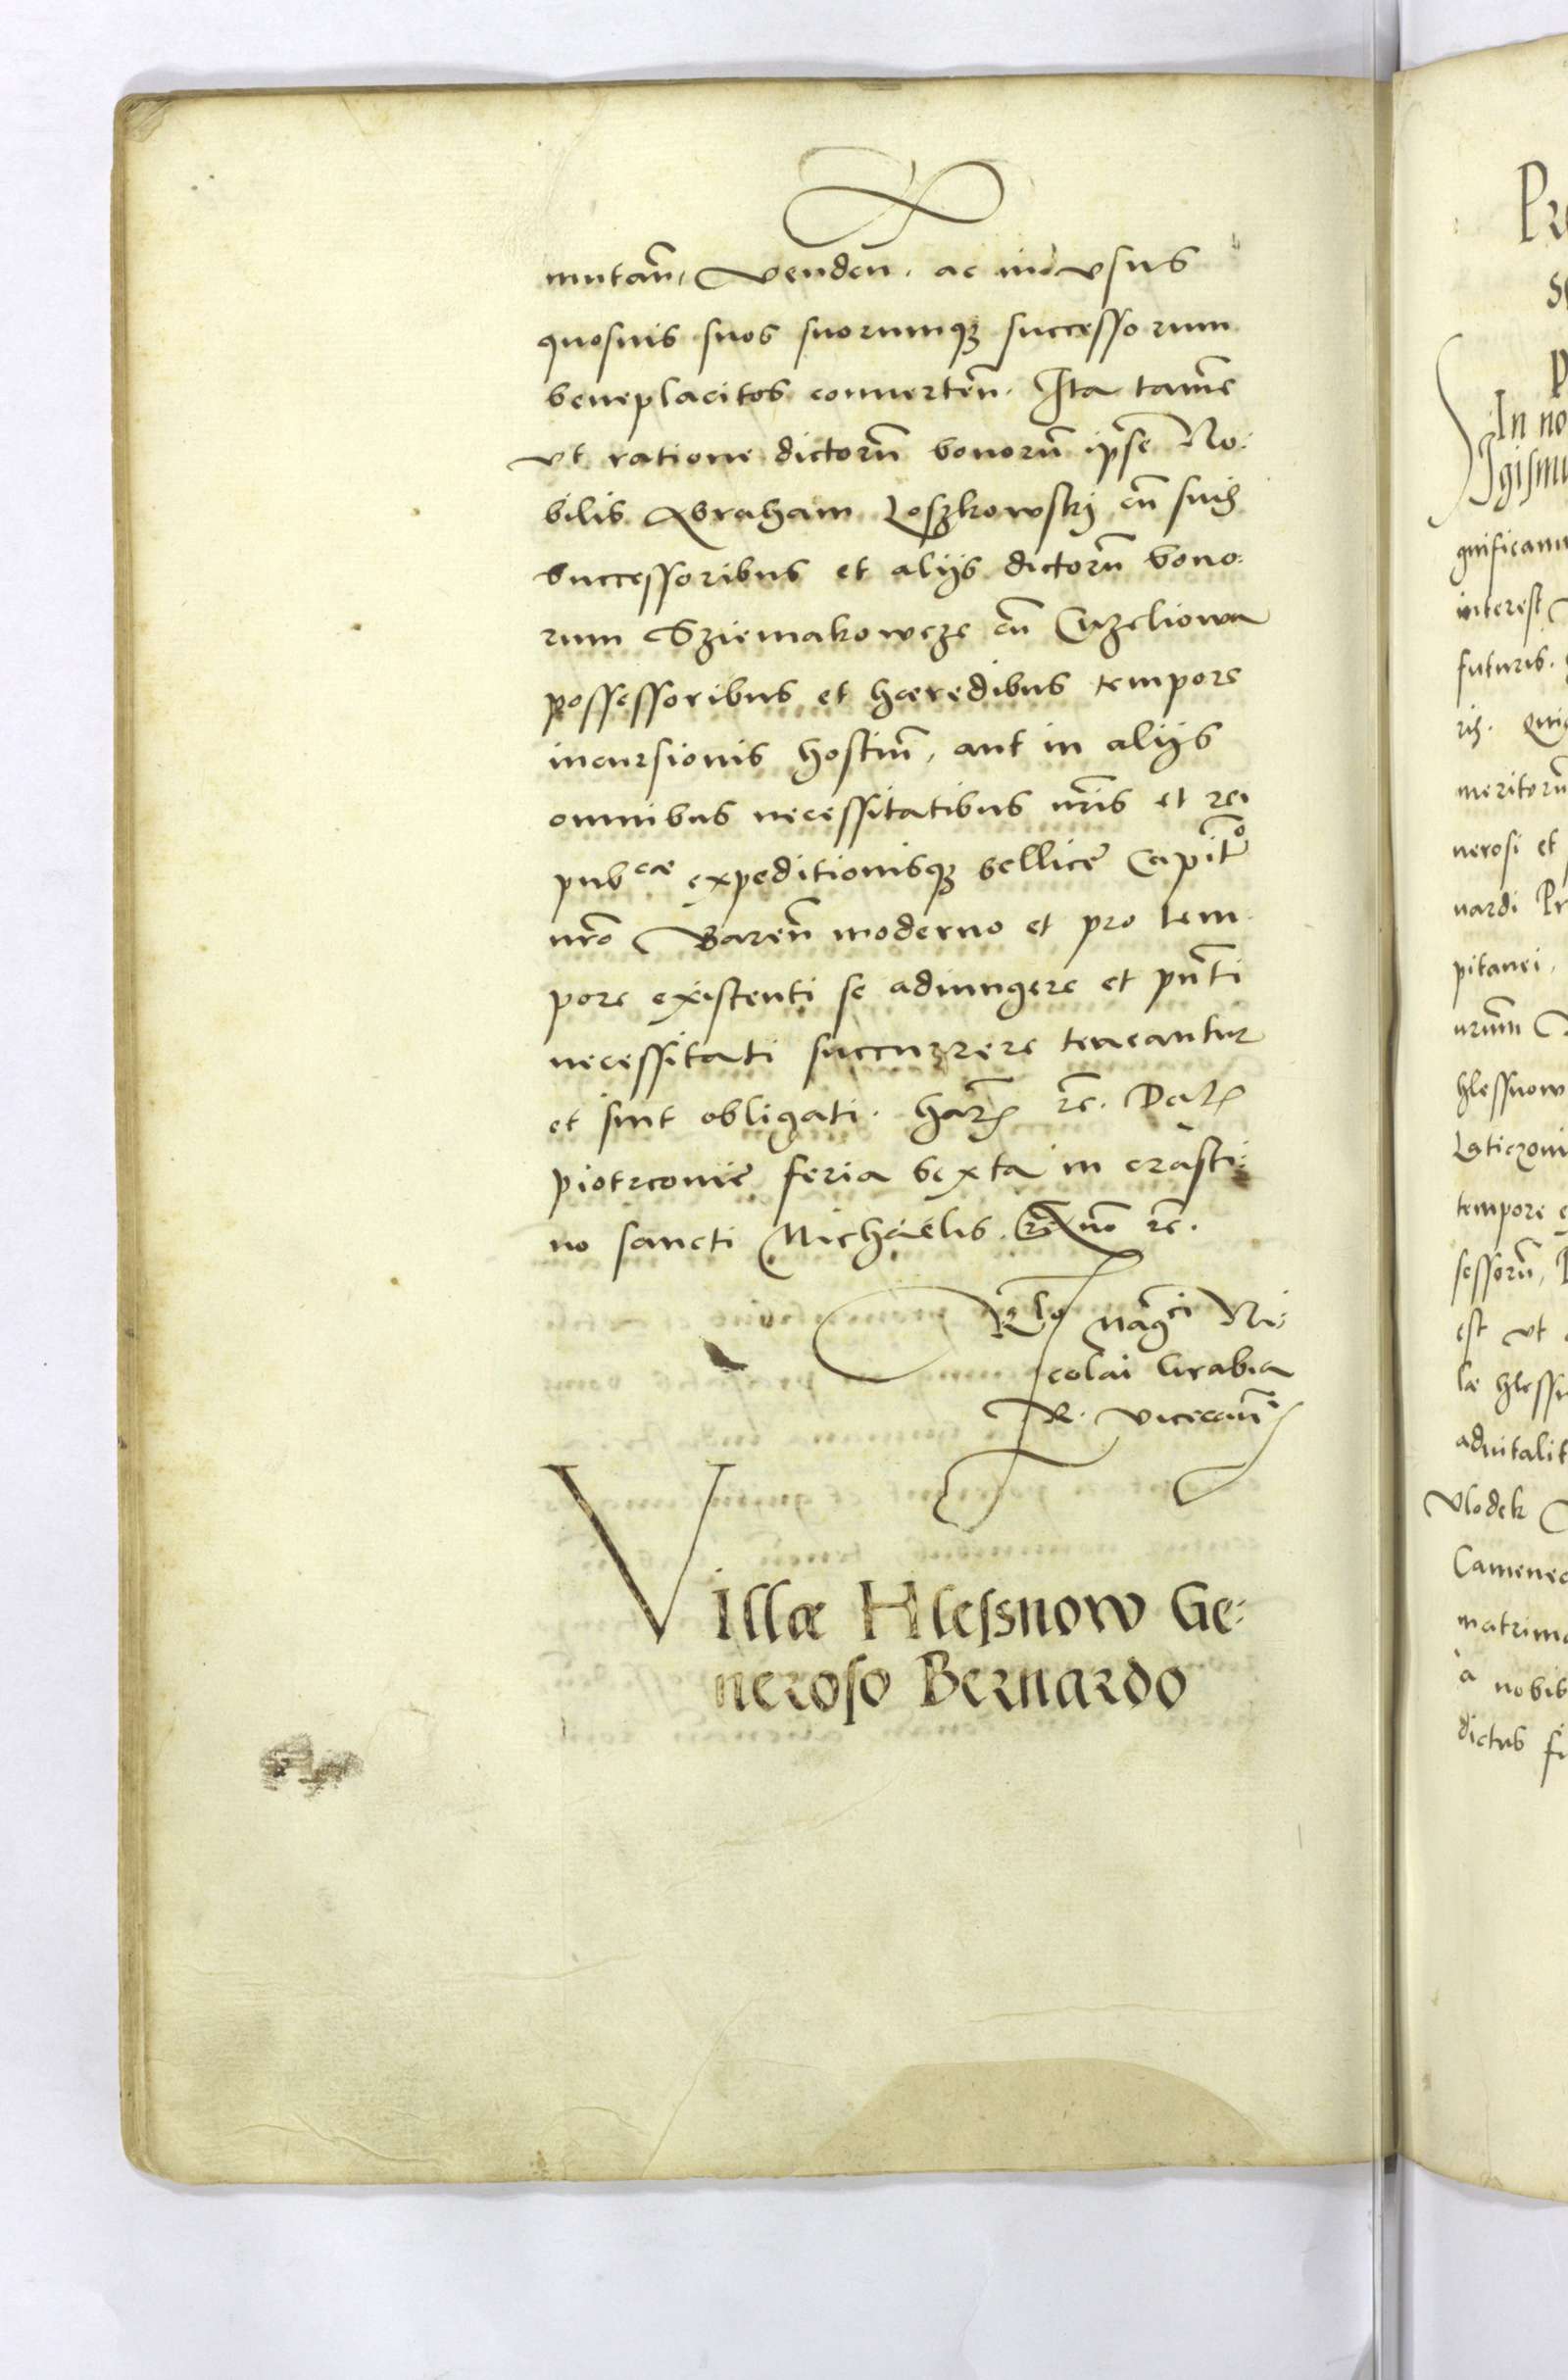 mutan̄, Venden. ac in vsus
quosuis suos suorumqꝫ successorum
beneplacitos conuerten̄. Ita tamē
vt ratione dictorū bonorū ipse No:
bilis Abraham Loszkowskij cū suis
Successoribus et alijs dictorū bono:
rum Sziemakowcze cū Cuzeliowa
possessoribus et hæredibus tempore
incursionis hostiū, aut in alijs
omnibus necessitatibus nr̄is et rei
pubcæ expeditionisqꝫ bellicę Capitō
nrō Baren̄ moderno et pro tem
pore existenti se adiungere et pn̄ti
necessitati succurrere teneantur
et sint obligati. Harꝫ rc̄. Datꝫ
piotrconię feria Sexta in crasti:
no sancti Michaelis. rc̄.
R̄lo Mag̃ci Ni:
colai Grabia
R. vicecan̄
Villæ Hlessnow Ge:
neroso Bernardo
Pr
In no
gismu
gnificamu
interest
futuris.
ris. Qui
meritorū
nerosi et
nardi Pr
pitanei,
hlessnow
Laticzoui
tempore
sessorū,
est vt
læ hlessn
aduitalit
Vlodek
Camenec
matrimo
a nobis
dictus fi